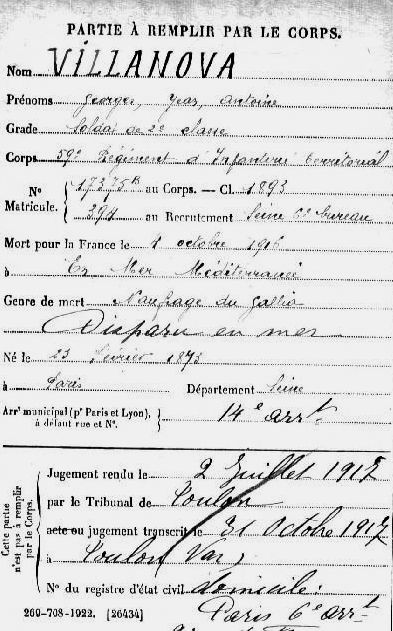 PARTIE À REMPLIR PAR LE CORPS.
Nom VILLANOVA
Prénoms Georges, Jean, Antoine
Grade Soldat de 2e classe
Corps 59e Régiment d'Infanterie territorial
N° Matricule. 17275 au Corps. — Cl. 1893
394 au Recrutement Seine 6e bureau
Mort pour la France le 4 octobre 1916
à En Mer Méditerranée
Genre de mort Naufrage du Gallia
Disparu en mer
Né le 23 février 1873
à Paris Département Seine
Arrt municipal (pr Paris et Lyon), à défaut rue et N°. 14e arrt
Cette partie n'est pas à remplir par le Corps.
Jugement rendu le 2 Juillet 1917
par le Tribunal de Toulon
acte ou jugement transcrit le 31 Octobre 1917
à Toulon Var)
N° du registre d'état civil domicile:
Paris 6e arrt
260-708-1922. [26434]